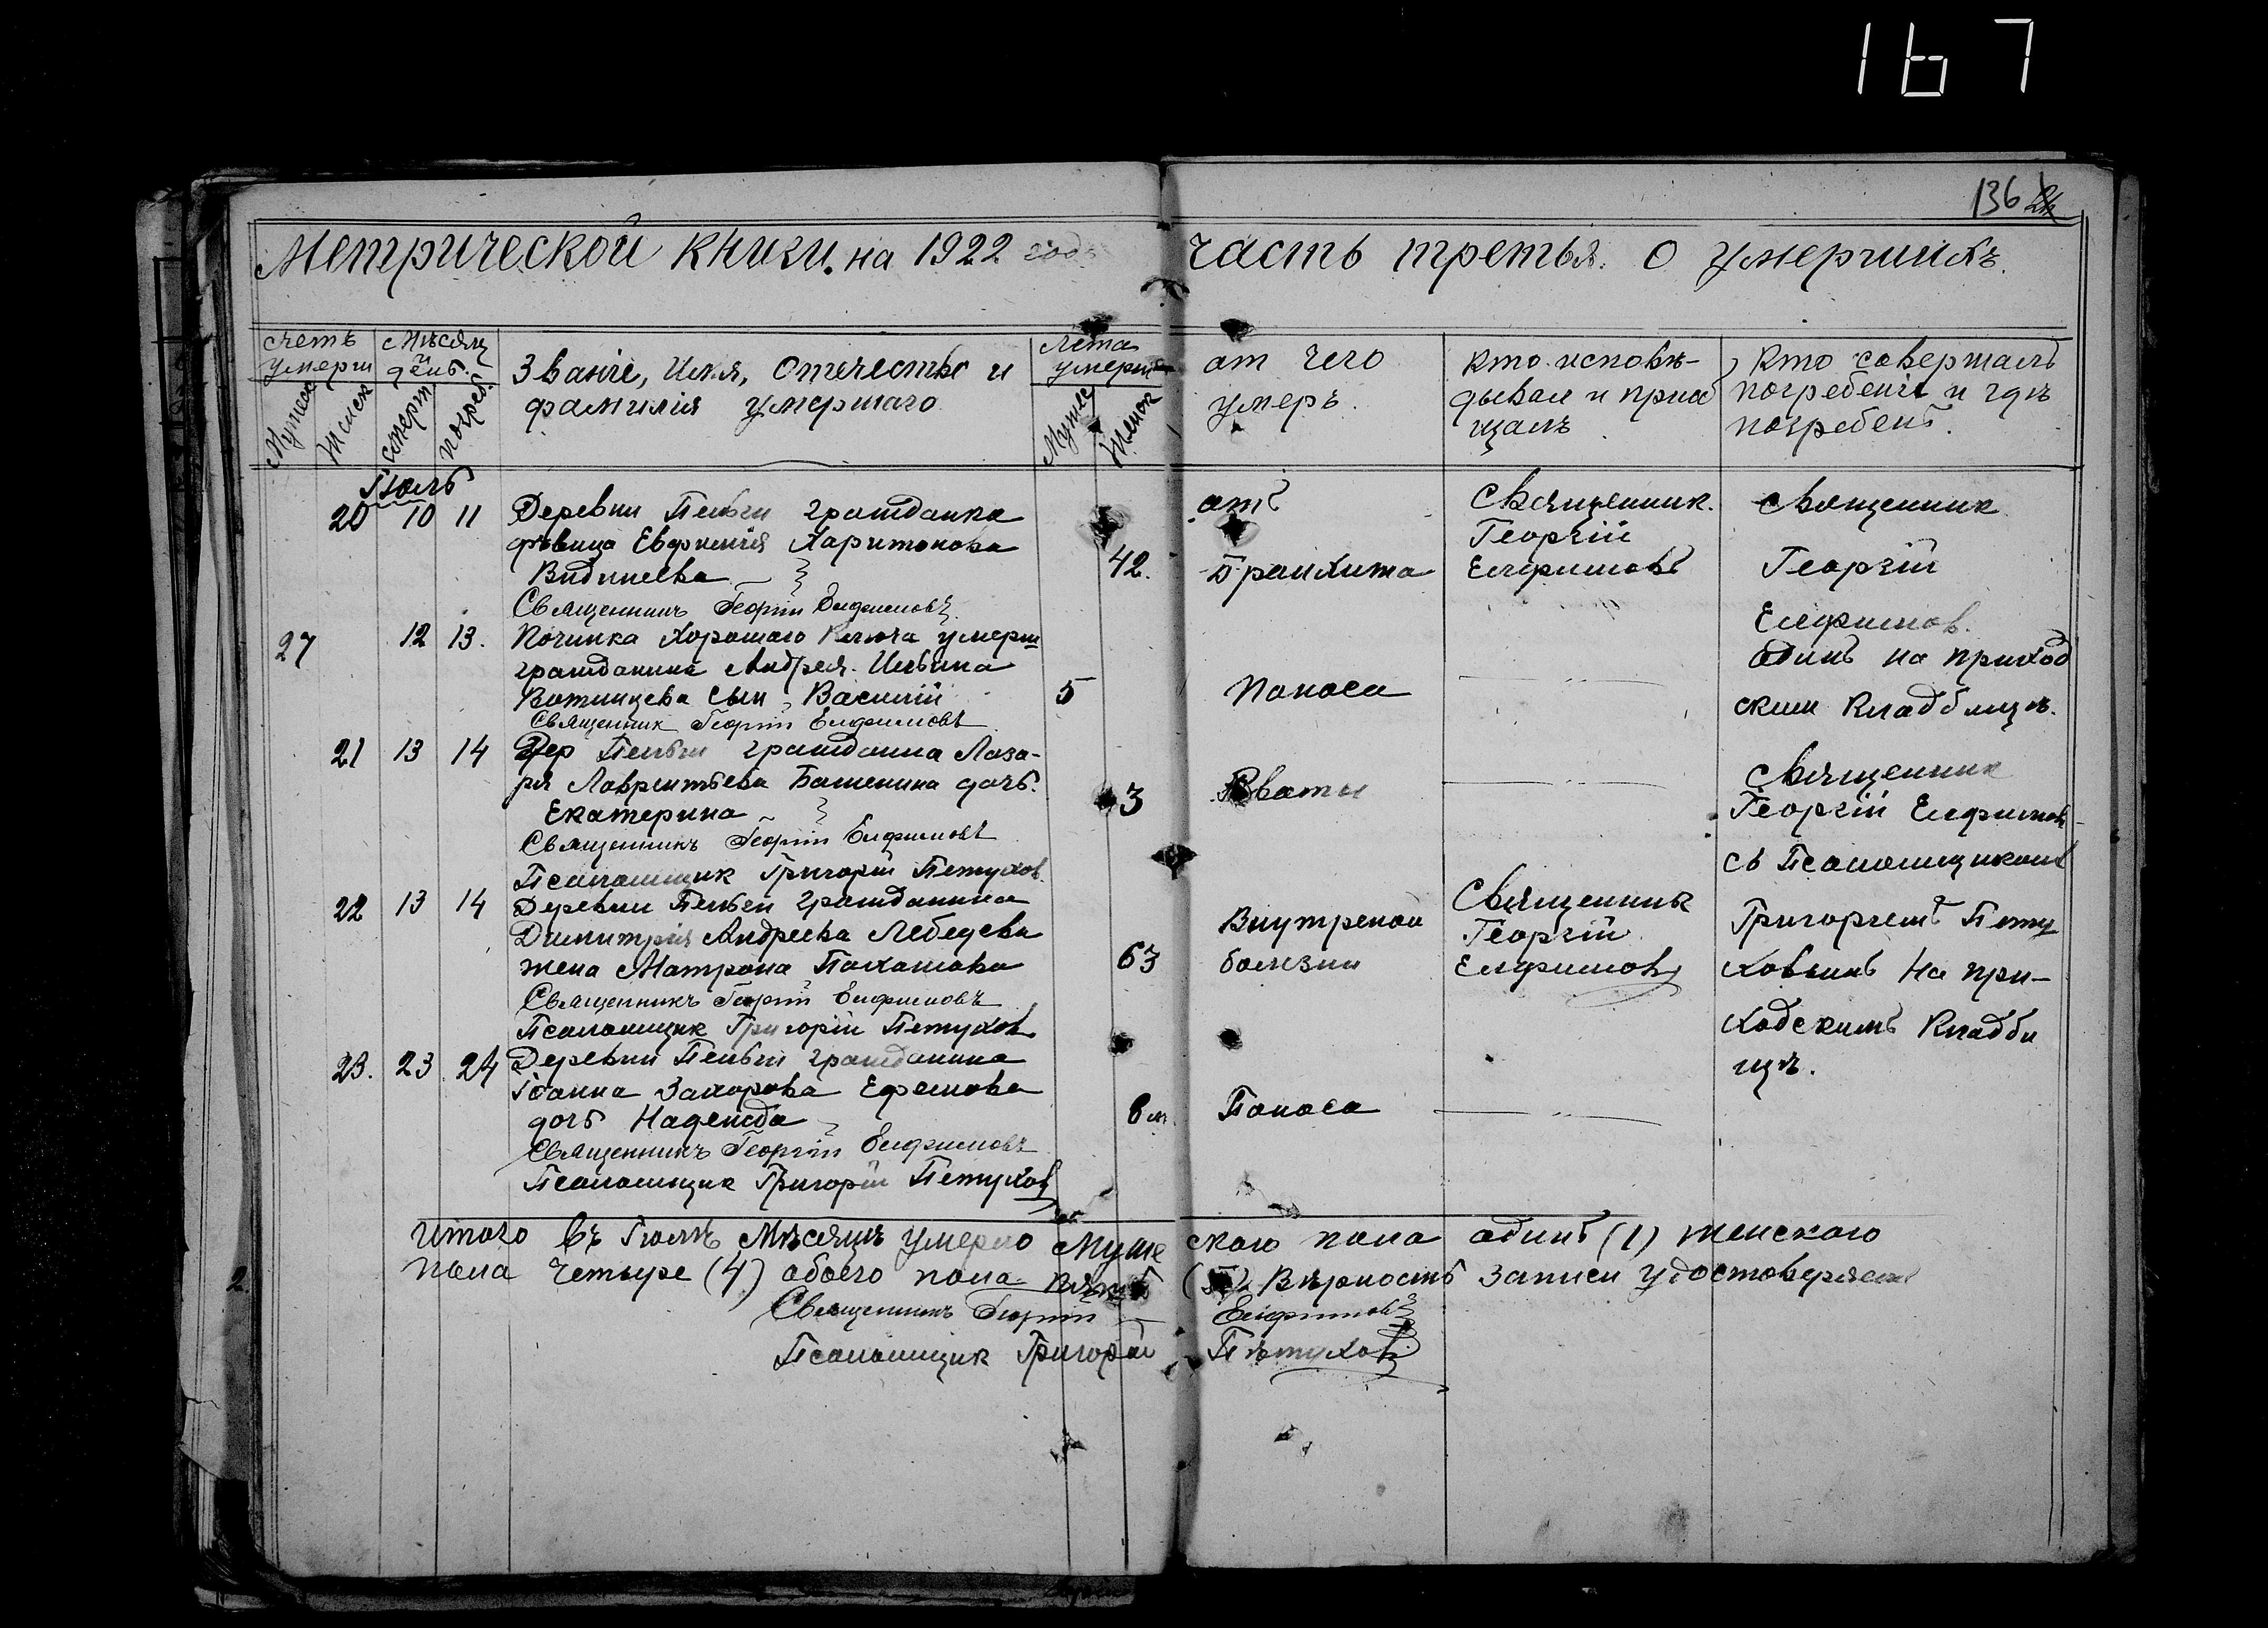 167
136 24
Метрической книги. на 1922 годъ часть третья. О умершихъ.
Счетъ умерш
Мѣсяц и день.
Звание, Имя, Отчество и фамилія умершаго
Лета умерш
от чего умеръ.
Кто исповѣ-
дывал и приоб
щалъ
Кто совершалъ
погребеніе и гдѣ
погребенъ.
Мужск
Женск
Смерт
Погреб.
Мужес
Женск
Іюль
20 10 11 Деревни Пельги гражданка
дѣвица Евфимія Харитонова
Видинеева
Священникъ Георгій Елфимовъ
42.
отъ
Бранхита
Священник.
Георгій
Елфимовъ
Священник
Георгій
Елфимов.
Одинъ на приход
ском Кладбищѣ.
27 12 13. Починка Хорошаго Ключа умерш
гражданина Андрея Ильина
Вотинцева сын Василій
Священник Георгій Елфимовъ
5
Поноса
21 13 14 Дер Пельги гражданина Лаза-
ря Лаврентьева Башенина дочь.
Екатерина
Священникъ Георгій Елфимовъ
Псаломщик Григорій Петухов.
3
Рвоты
Священник
Георгій Елфимов
съ Псаломщикомъ
Григоріемъ Пету
ховымъ На при-
ходскимъ Кладби
щѣ.
22 13 14 Деревни Пельги гражданина
Димитрія Андреева Лебедева
жена Матрона Полахова
Священникъ Георгій Елфимовъ
Псаломщик Григорій Петухов
63
Внутреной
болезни
Священникъ
Георгій
Елфимовъ
23. 23 24 Деревни Пельги гражданина
Іоанна Захорова Ефемова
дочь Надежда
Священникъ Георгій Елфимовъ
Псаломщик Григорій Петухов
8 м.
Поноса
Итого въ Іюлѣ Мѣсяцѣ умерло Муж ского пола одинъ (1) женского
пола четыре (4) обоего пола пять (5) Вѣрность записи удостоверяем
Священникъ Георгій Елфимовъ
Псаломщик Григорій Пѣтухов
2